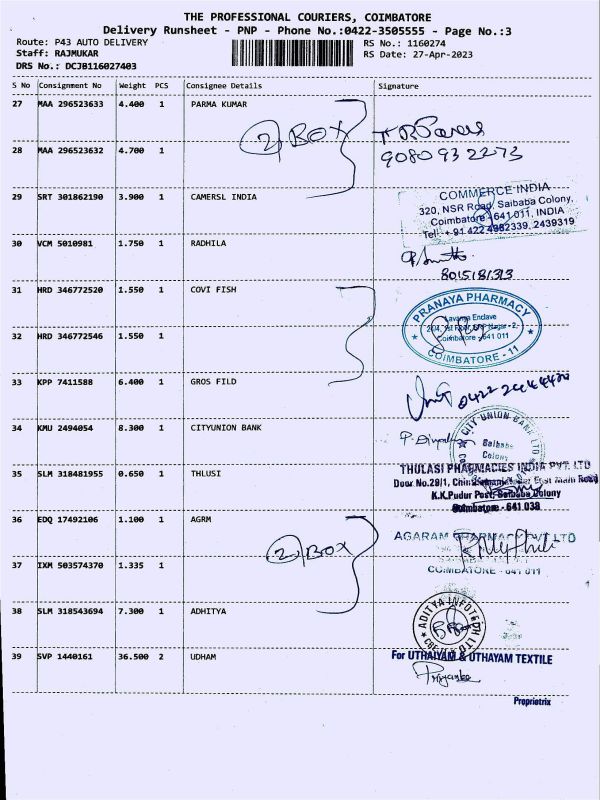 THE PROFESSIONAL COURIERS, COIMBATORE
Delivery Runsheet - PNP - Phone No.:0422-3505555 - Page No.:3
Route: P43 AUTO DELIVERY RS No.: 1160274
Staff: RAJMUKAR RS Date: 27-Apr-2023
DRS No.: DCJB116027403
S No Consignment No Weight PCS Consignee Details Signature
27 MAA 296523633 4.400 1 PARMA KUMAR
2 BOX
28 MAA 296523632 4.700 1
9080932273
29 SRT 301862190 3.900 1 CAMERSL INDIA
COMMERCE INDIA
320, NSR Road, Saibaba Colony,
Coimbatore - 641 011, INDIA
Tel: +91 422 4982339, 2439319
30 VCM 5010981 1.750 1 RADHILA
8015181313
31 HRD 346772520 1.550 1 COVI FISH
PRANAYA PHARMACY
Lavanya Enclave
Coimbatore - 641 011
COIMBATORE - 11
32 HRD 346772546 1.550 1
33 KPP 7411588 6.400 1 GROS FILD
34 KMU 2494054 8.300 1 CITYUNION BANK
CITY UNION BANK LTD
Saibaba
Colony
35 SLM 318481955 0.650 1 THLUSI
THULASI PHARMACIES INDIA PVT. LTD
Door No.29/1, East Main Road
K.K.Pudur Post, Saibaba Colony
Coimbatore - 641 038
36 EDQ 17492106 1.100 1 AGRM
AGARAM PHARMACY PVT LTD
2 BOX
37 IXM 503574370 1.335 1
COIMBATORE - 641 011
38 SLM 318543694 7.300 1 ADHITYA
ADITYA INFOTECH
39 SVP 1440161 36.500 2 UDHAM
For UTHAIYAM & UTHAYAM TEXTILE
Priyanka
Proprietrix